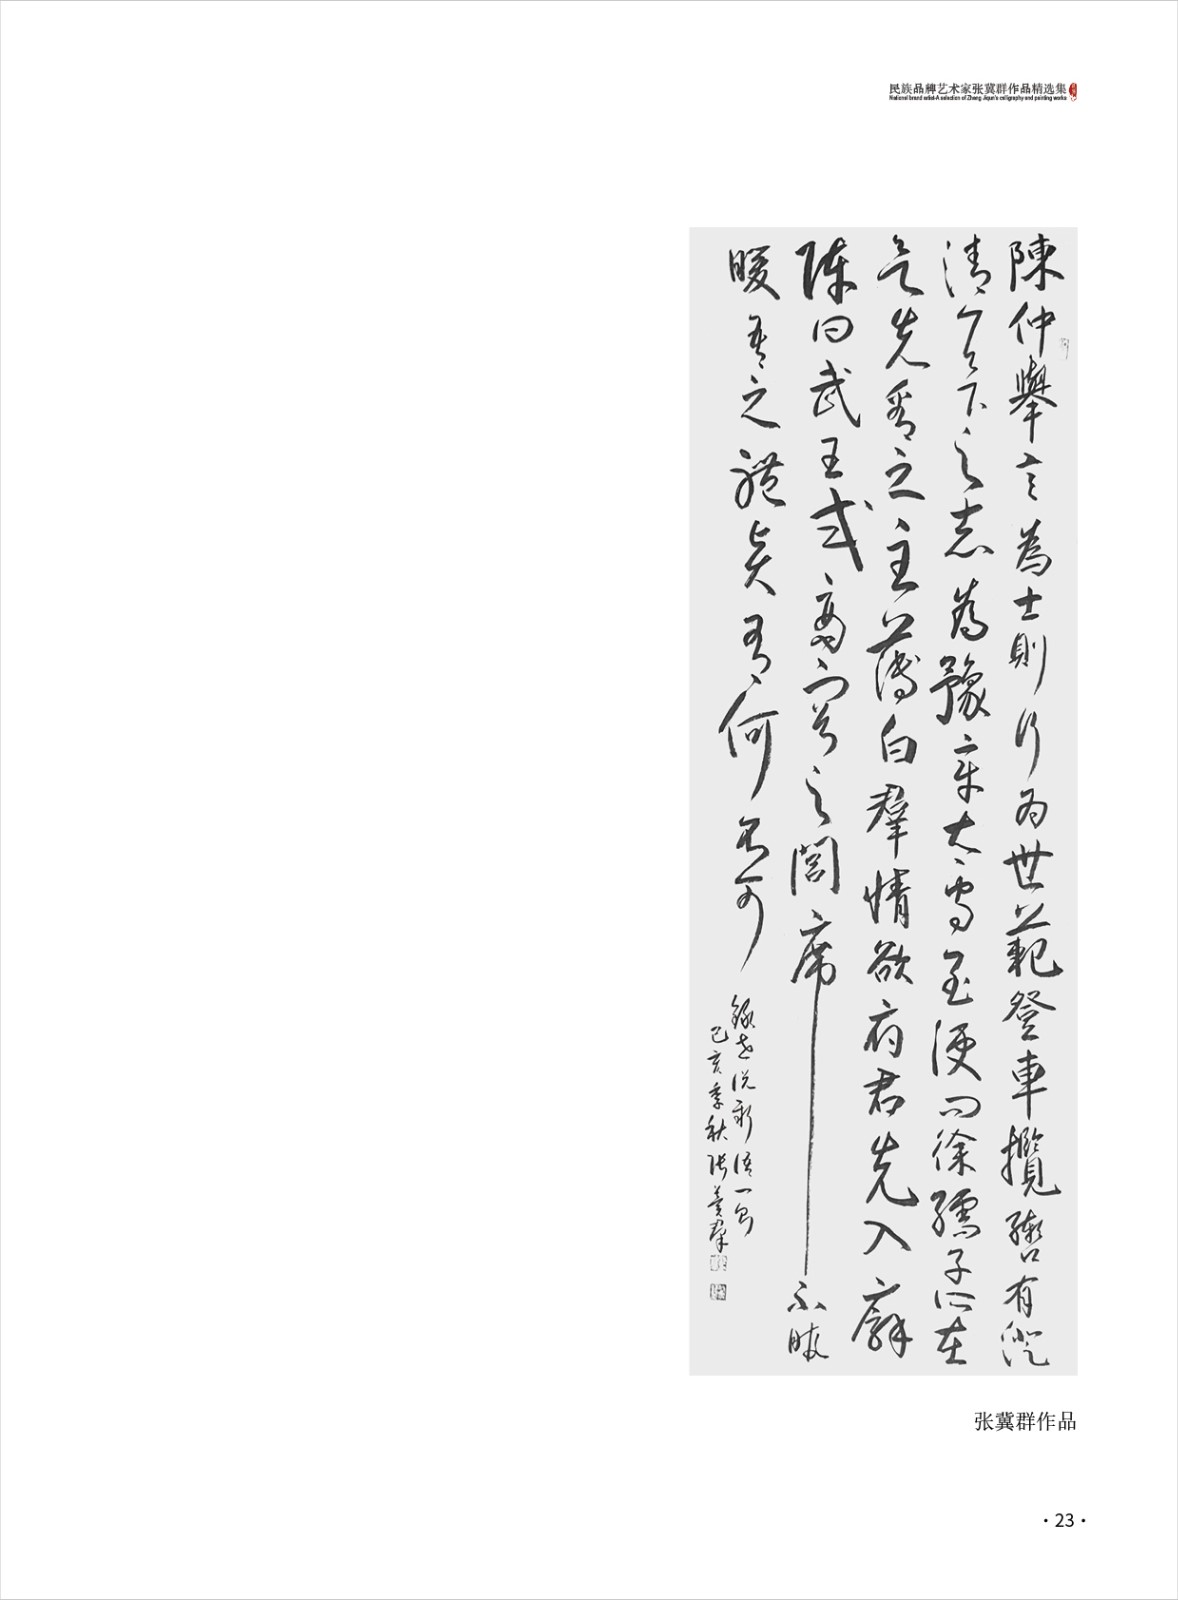 民族品牌艺术家张冀群作品精选集
National brand artist-A selection of Zhang Jiqun's calligraphy and painting works
陳仲舉言為士則行為世範登車攬轡有澄
清天下之志為豫章太守至便問徐孺子所在
先看之主薄白羣情欲府君先入廨
陳曰武王式商容之閭席不暇
暖吾之禮賢有何不可
錄世說新語一則
己亥季秋張冀羣
张冀群作品
·23·